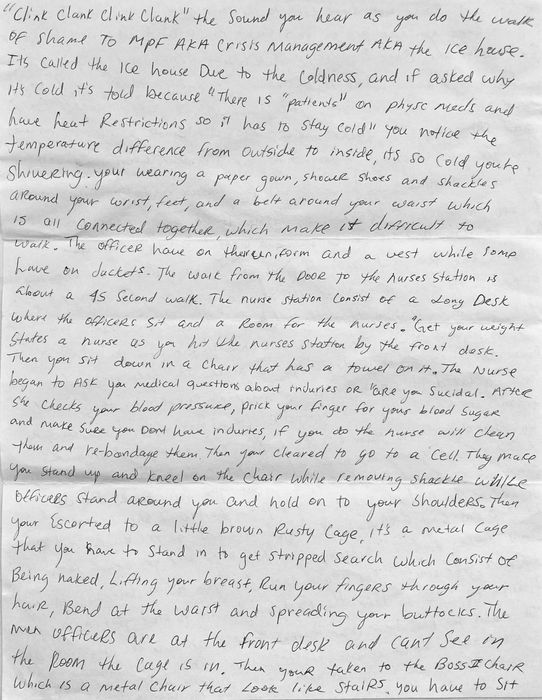 "Clink Clank Clink Clank" the Sound you hear as you do the walk
OF Shame To MPF AKA Crisis Management AKA the Ice house.
Its called the Ice house Due to the Coldness, and if asked why
its Cold it's told because "There is "patients" on physc meds and
have heat Restrictions so it has to stay cold" you notice the
temperature difference from outside to inside, its so cold you're
Shivering. your wearing a paper gown, shower shoes and shackles
around your wrist, feet, and a belt around your waist which
is all connected together, which make it difficult to
walk. The officer have on there uniform and a vest while some
have on Jackets. The walk from the Door To the Nurses Station is
about a 45 Second walk. The nurse station Consist of a Long Desk
where the officers sit and a Room for the nurses. "Get your weight
States a nurse as you hit the nurses station by the front desk.
Then you sit down in a chair that has a towel on it. The Nurse
began to Ask you medical questions about injuries OR "are you Sucidal. After
She Checks your blood pressure, prick your finger for your blood Sugar
and make Sure you Dont have injuries, if you do the nurse will Clean
them and re-bandage them. Then your cleared to go to a Cell. They make
you Stand up and kneel on the Chair while removing shackle while
Officers Stand around you and hold on to your Shoulders. Then
your Escorted to a little brown Rusty Cage, it's a metal Cage
that you have to Stand in to get stripped Search which Consist of
Being naked, Lifting your breast, Run your fingers through your
hair, Bend at the waist and spreading your buttocks. The
men officers are at the front desk and cant See in
the Room the Cage is in. Then your taken to the Boss II Chair
which is a metal Chair that Look like Stairs. you have to Sit